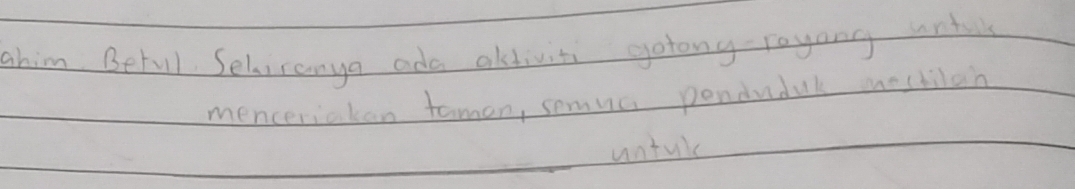 ahim Betul. Sekiranya ada aktiviti gotong-royong untuk
menceriakan taman, semua penduduk mestilah
untuk